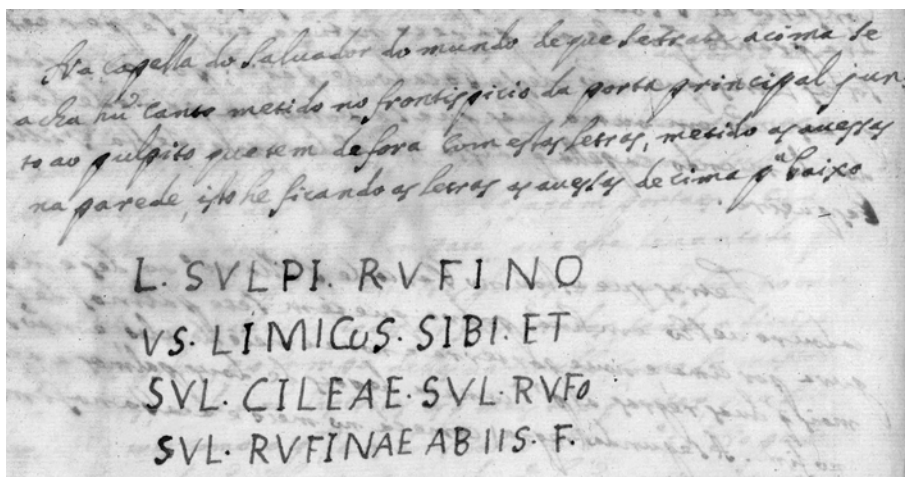 Na capella do Saluador do mundo de que se trata acima se
acha hũ canto metido no frontispicio da porta principal jun-
to ao pulpito que tem de fora com estas letras, metido as auessas
na parede, isto he ficando as letras as auessas de cima pª baixo
L. SVLPI. RVFINO
VS. LIMICuS. SIBI. ET
SVL. CILEAE. SVL. RVFo
SVL. RVFINAE AB IIS. F.